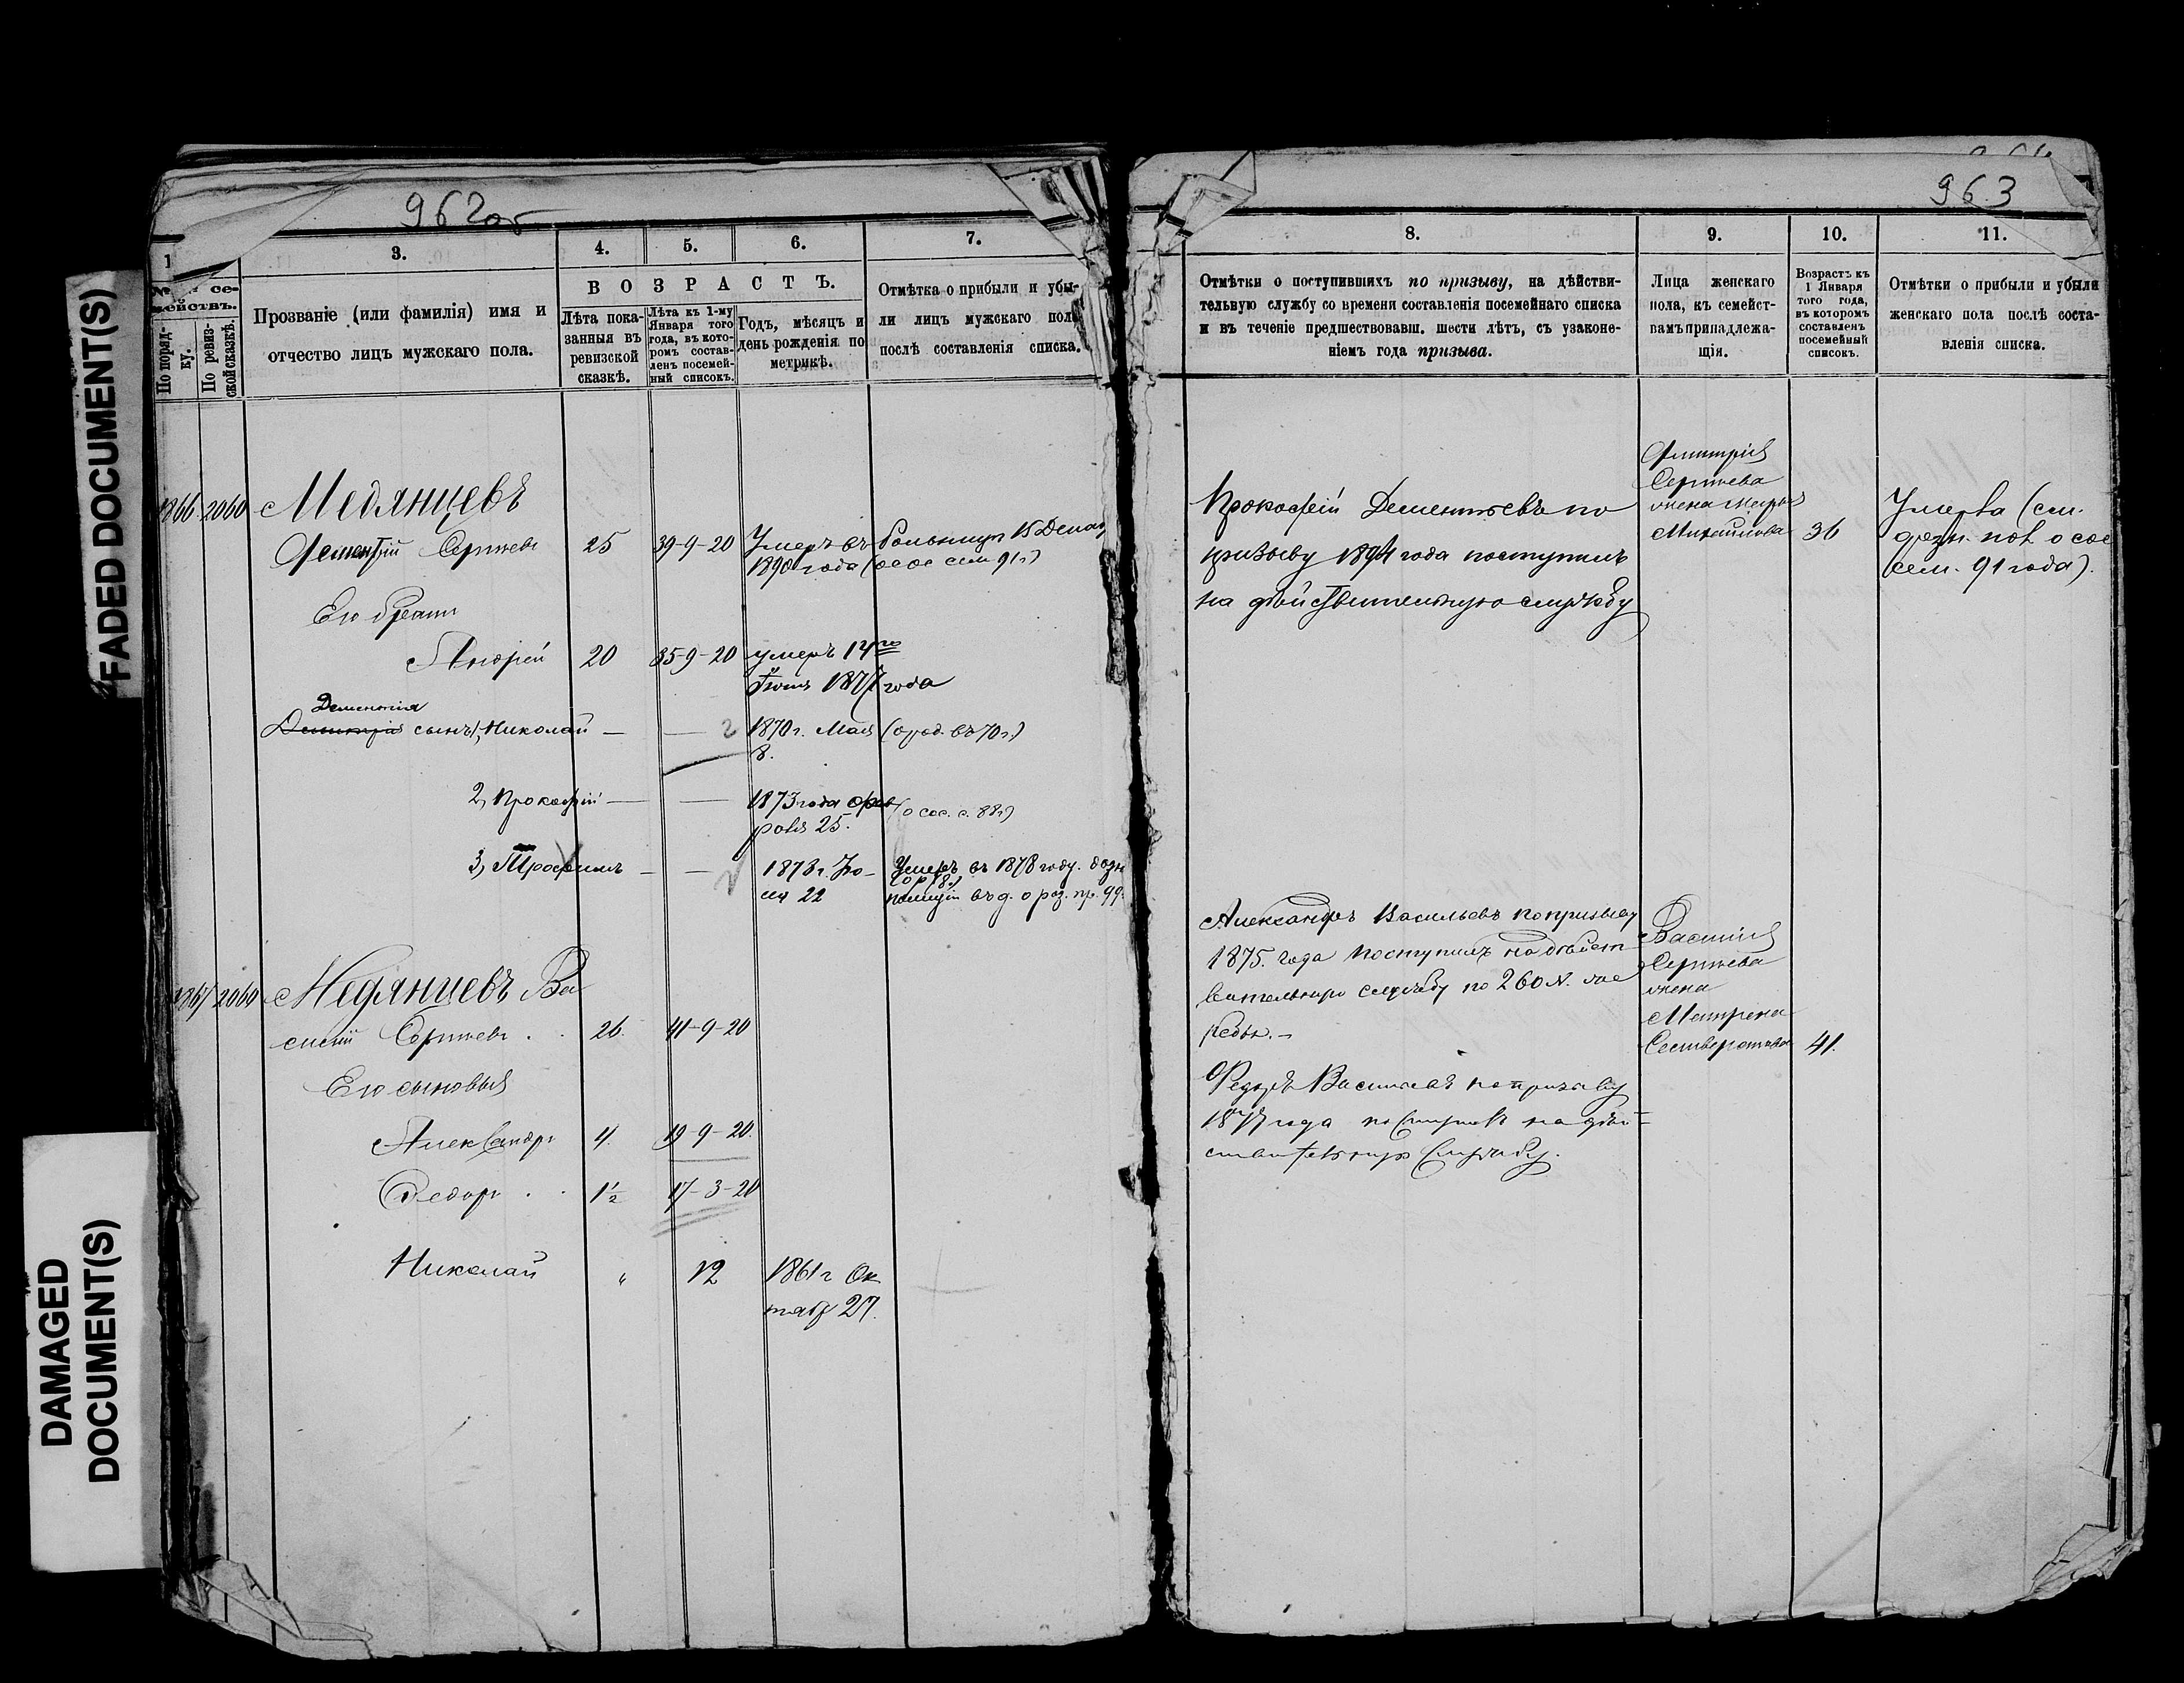 FADED DOCUMENT(S)
DAMAGED
DOCUMENT(S)
962об
3.
4.
5.
6.
7.
В О З Р А С Т Ъ.
По поряд-
ку.
По ревиз-
ской сказкѣ.
Прозваніе (или фамилія) имя и
отчество лицъ мужскаго пола.
Лѣта пока-
занныя въ
ревизской
сказкѣ.
Лѣта къ 1-му
Января того
года, въ кото-
ромъ состав-
ленъ посемей-
ный списокъ.
Годъ, мѣсяцъ и
день рожденія по
метрикѣ.
Отмѣтка о прибыли и убы-
ли лицъ мужскаго пола
послѣ составленія списка.
1866 2060 Медянцевъ
Дементій Сергѣевъ 25 39-9-20 Умеръ въ больницѣ 15 Декаб
1890 года (о сос сем 91 г)
Его братъ
Андрей 20 35-9-20 умеръ 14го
1877 года
Дементія
Дмитрія сынъ 1, Николай — — 2 1870 г. Мая (о род. въ 70 г.)
8.
2, Прокофій — — 1873 года Фев (о сос. с. 88 г)
раля 25.
3, Трофимъ — — 1873 г. Умеръ въ 1878 году. дозн
22 полиціи въ д. о раз. пр. 99
1867 2060 Медянцевъ Ва
силій Сергѣевъ . . 26. 41-9-20
Его сыновья
Александръ 4. 19-9-20.
Федоръ . . 1½ 17-3-20
Николай " 12 1861 г Ок
тяб 27.
963
8.
9.
10.
11.
Отмѣтки о поступившихъ по призыву, на дѣйстви-
тельную службу со времени составленія посемейнаго списка
и въ теченіе предшествовавш. шести лѣтъ, съ узаконе-
ніемъ года призыва.
Лица женскаго
пола, къ семейст-
вамъ принадлежа-
щія.
Возрастъ къ
1 Января
того года,
въ которомъ
составленъ
посемейный
списокъ.
Отмѣтки о прибыли и убыли
женскаго пола послѣ соста-
вленія списка.
Прокофій Дементьевъ по
призыву 1894 года поступилъ
на дѣйствительную службу
Дмитрія
Сергѣева
жена Марья
Михайлова 36
Умерла (см.
дозн. пол. о сос
сем. 91 года).
Александръ Васильевъ по призыву
1875. года поступилъ на дѣйст
вительную службу по 260 №. жре
бью. –
Федоръ Васильевъ по призыву
1877 года поступилъ на дѣй-
ствительную службу.
Василія
Сергѣева
жена
Матрена
Селиверстова 41.